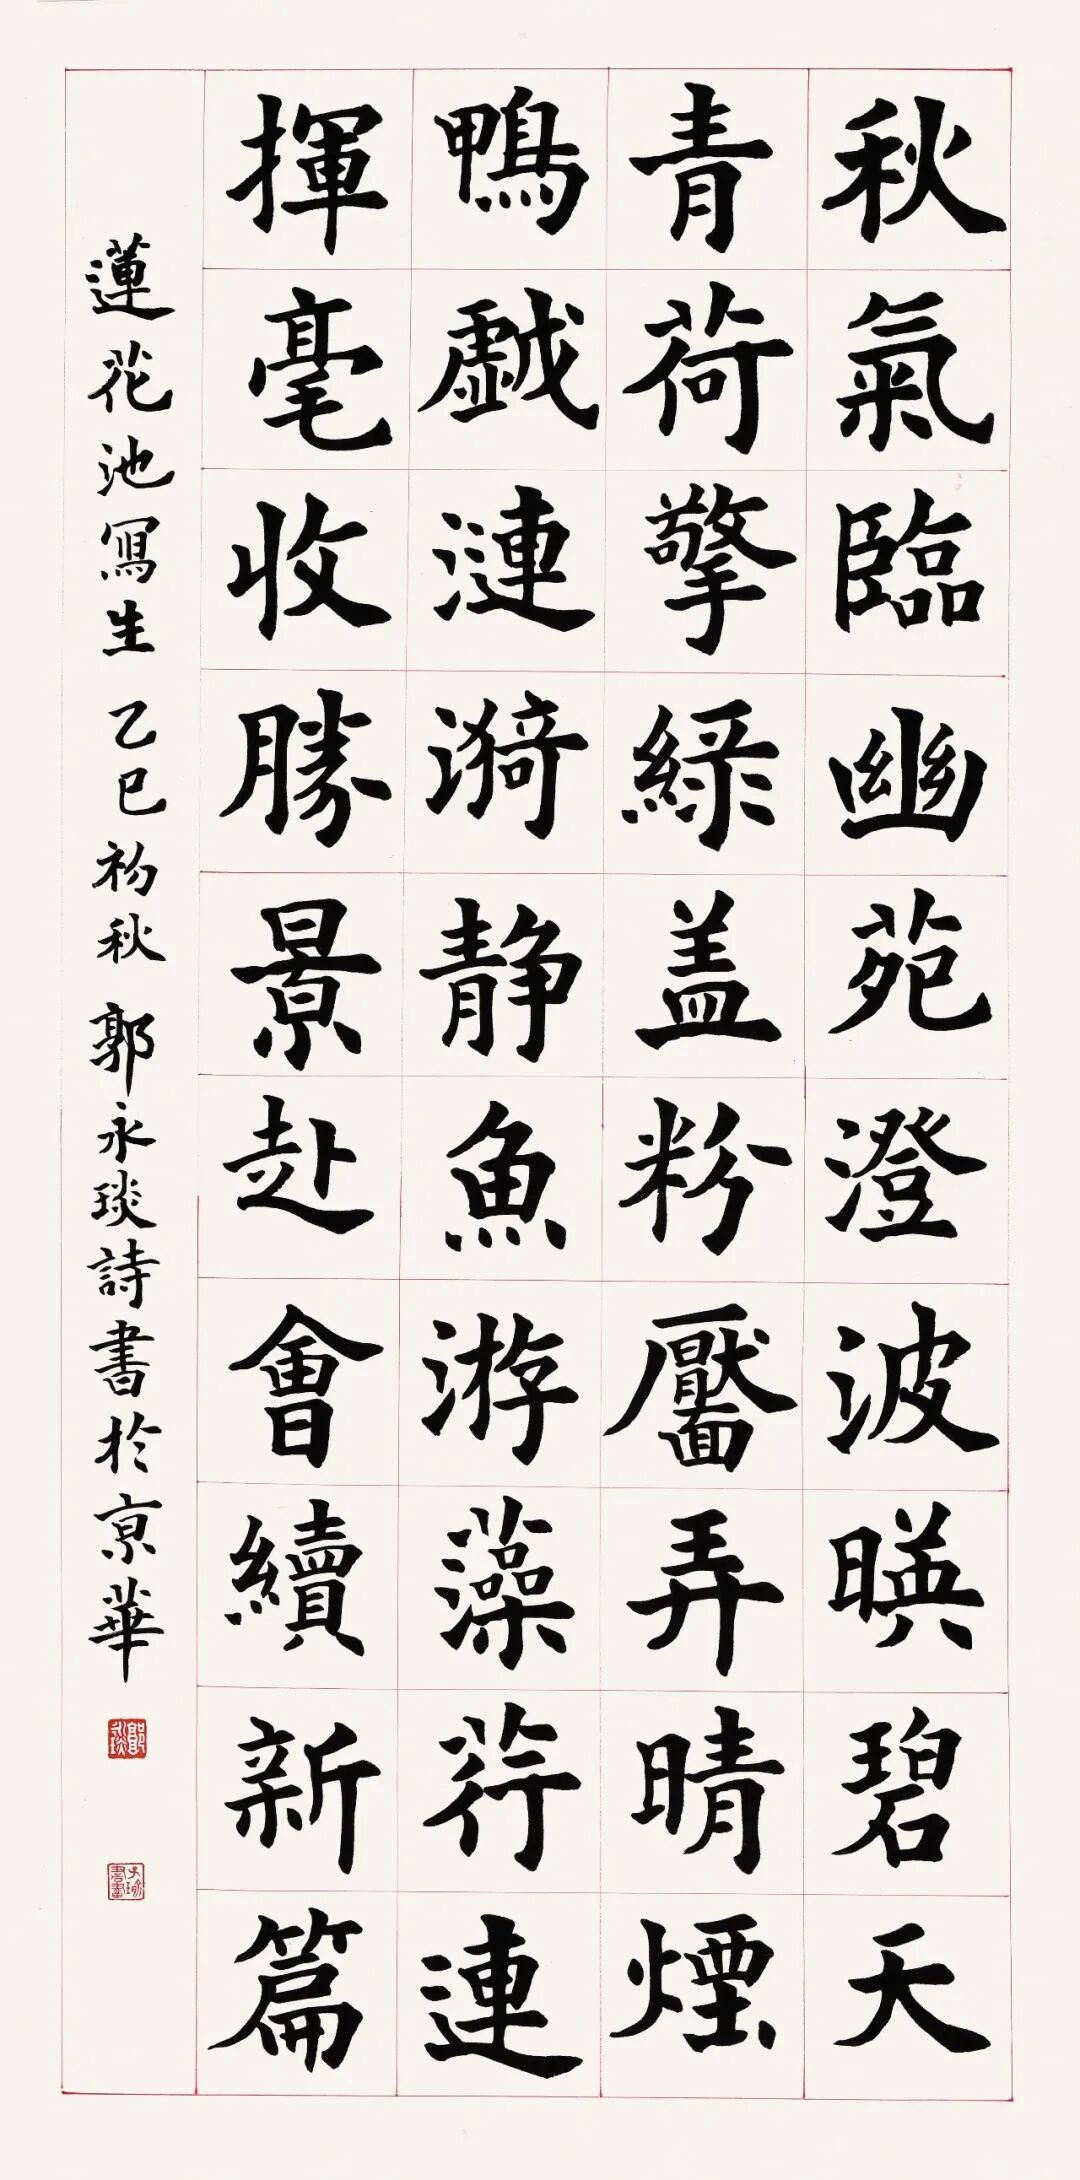 秋氣臨幽苑澄波暎碧天
青荷擎綠盖粉靨弄晴煙
鴨戯漣漪靜魚游藻荇連
揮毫收勝景赴會續新篇
蓮花池寫生 乙巳初秋 郭永琰詩書於京華
郭永琰
子瑜書畫